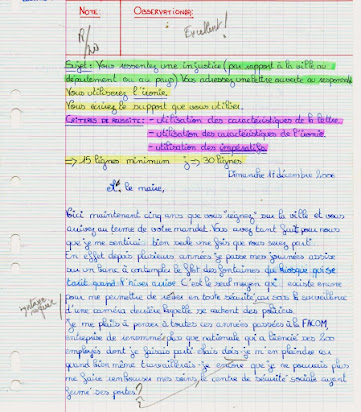 NOTE:
OBSERVATIONS:
Excellent!
Sujet: Vous ressentez une injustice (par rapport à la ville au
département ou au pays) Vous adressez une lettre ouverte au responsable
Vous utiliserez l'ironie.
Vous écrirez le support que vous utiliser.
CRITERES DE REUSSITE: - utilisation des caractéristiques de la lettre
- utilisation des caractéristiques de l'ironie.
- utilisation des impératifs
=> 15 lignes minimum ; -> 30 lignes
Dimanche 17 décembre 2000
le maire,
Voici maintenant cinq ans que vous "régnez" sur la ville et vous
arrivez au terme de votre mandat. Vous avez tant fait pour nous
que je me sentirai bien seule une fois que vous serez parti.
En effet depuis plusieurs années je passe mes journées assise
sur un banc à contempler le filet des fontaines du kiosque qui se
tarit quand l'hiver arrive. C'est le seul moyen qui existe encore
pour me permettre de rêver en toute sécurité sous la surveillance
d'une caméra derrière laquelle se cachent des policiers.
Je me plais à penser à toutes ces années passées à la FACOM,
entreprise de renommée plus que nationale qui a licencié des
employés dont je faisais partie mais dois-je m'en plaindre
quand bien même travaillerais-je encore que je ne pourrais plus
me faire rembourser mes soins, le centre de sécurité sociale ayant
fermé ses portes?